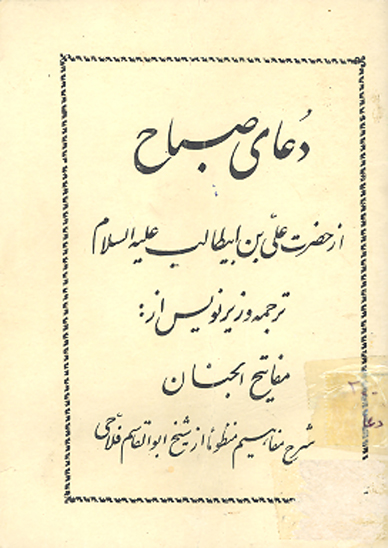 دُعای صباح
از حضرت علی بن ابیطالب علیه السلام
ترجمه و زیرنویس از:
مفاتیح الجنان
شرح مفاهیم منظوماً از شیخ ابوالقاسم فلاحی
دعا